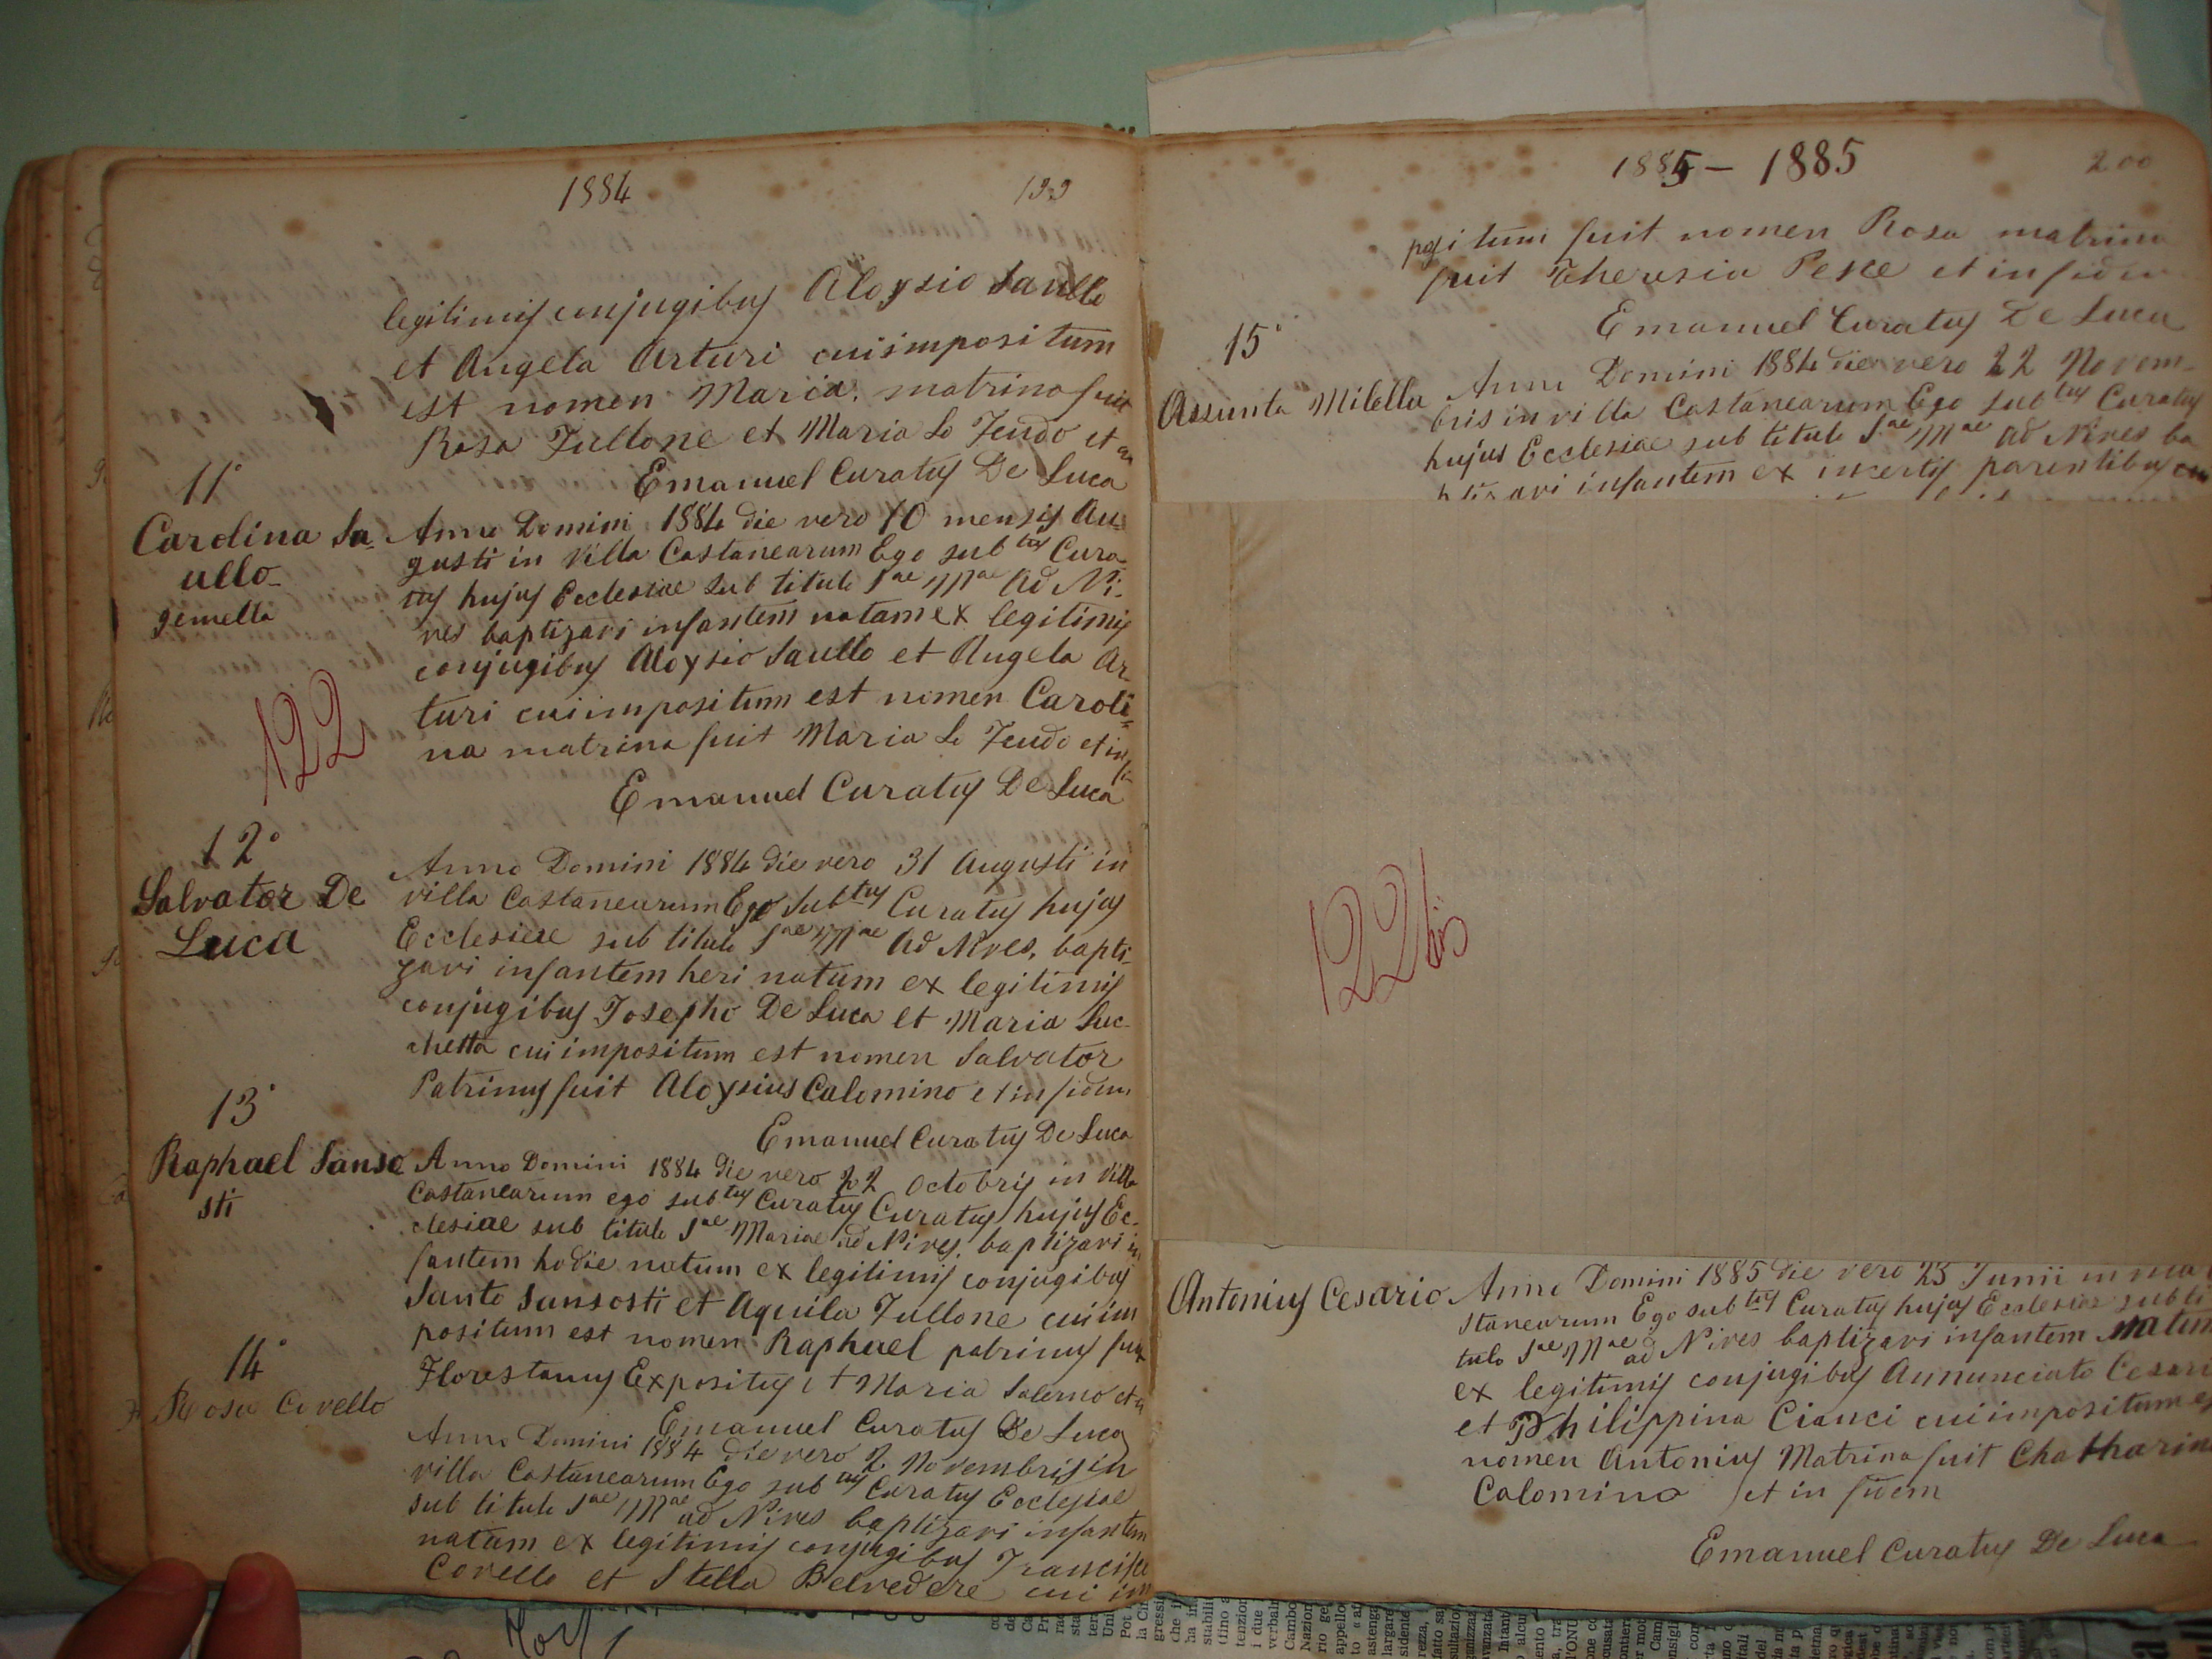 1884
199
legitimis conjugibus Aloysio Saullo
et Angela Arturi cui impositum
est nomen Maria. matrina fuit
Rosa Fullone et Maria Lo Feudo et in
Emanuel Curatus De Luca
11°
Carolina Sa-
ullo
gemella
Anno Domini 1884 die vero 10 mensis Au-
gusti in Villa Castanearum Ego subtus Cura
tus hujus Ecclesiae sub titulo Sae Mae Ad Ni-
ves baptizavi infantem natam ex legitimis
conjugibus Aloysio Saullo et Angela Ar-
turi cui impositum est nomen Caroli-
na matrina fuit Maria Lo Feudo et in
fi-
Emanuel Curatus De Luca
122
12°
Salvator De
Luca
Anno Domini 1884 die vero 31 Augusti in
villa Castanearum Ego Subtus Curatus hujus
Ecclesiae sub titulo Sae Mae Ad Nives, bapti-
zavi infantem heri natum ex legitimis
conjugibus Josepho De Luca et Maria Luc-
chetta cui impositum est nomen Salvator
Patrinus fuit Aloysius Calomino et in fidem
Emanuel Curatus De Luca
13°
Raphael Sanso
sti
Anno Domini 1884 die vero 22 Octobris in Villa
Castanearum ego subtus Curatus Curatus hujus Ec-
clesiae sub titulo Sae Mariae ad Nives. baptizavi in
fantem hodie natum ex legitimis conjugibus
Santo Sansosti et Aquila Fullone cui im
positum est nomen Raphael patrinus fuit
Florestanus Expositus et Maria Salerno et in
Emanuel Curatus De Luca
14°
Rosa Covello
Anno Domini 1884 die vero 2 Novembris in
villa Castanearum Ego subtus Curatus Ecclesiae
sub titulo Sae Mae ad Nives baptizavi infantem
natam ex legitimis conjugibus Francisco
Covello et Stella Belvedere cui im
1885 – 1885
200
positum fuit nomen Rosa matrina
fuit Theresia Pesce et in fidem
Emanuel Curatus De Luca
15°
Assunta Milella
Anno Domini 1884 die vero 22 Novem-
bris in villa Castanearum Ego subtus Curatus
hujus Ecclesiae sub titulo Sae Mae ad Nives ba
ptizavi infantem ex incertis parentibus cui
122bis
Antonius Cesario
Anno Domini 1885 die vero 23 Junii in
stanearum Ego subtus Curatus hujus Ecclesiae sub ti
tulo Sae Mae ad Nives baptizavi infantem natum
ex legitimis conjugibus Annunciato Cesari
et Philippina Cianci cui impositum es
nomen Antonius Matrina fuit Chatharina
Calomino et in fidem
Emanuel Curatus De Luca